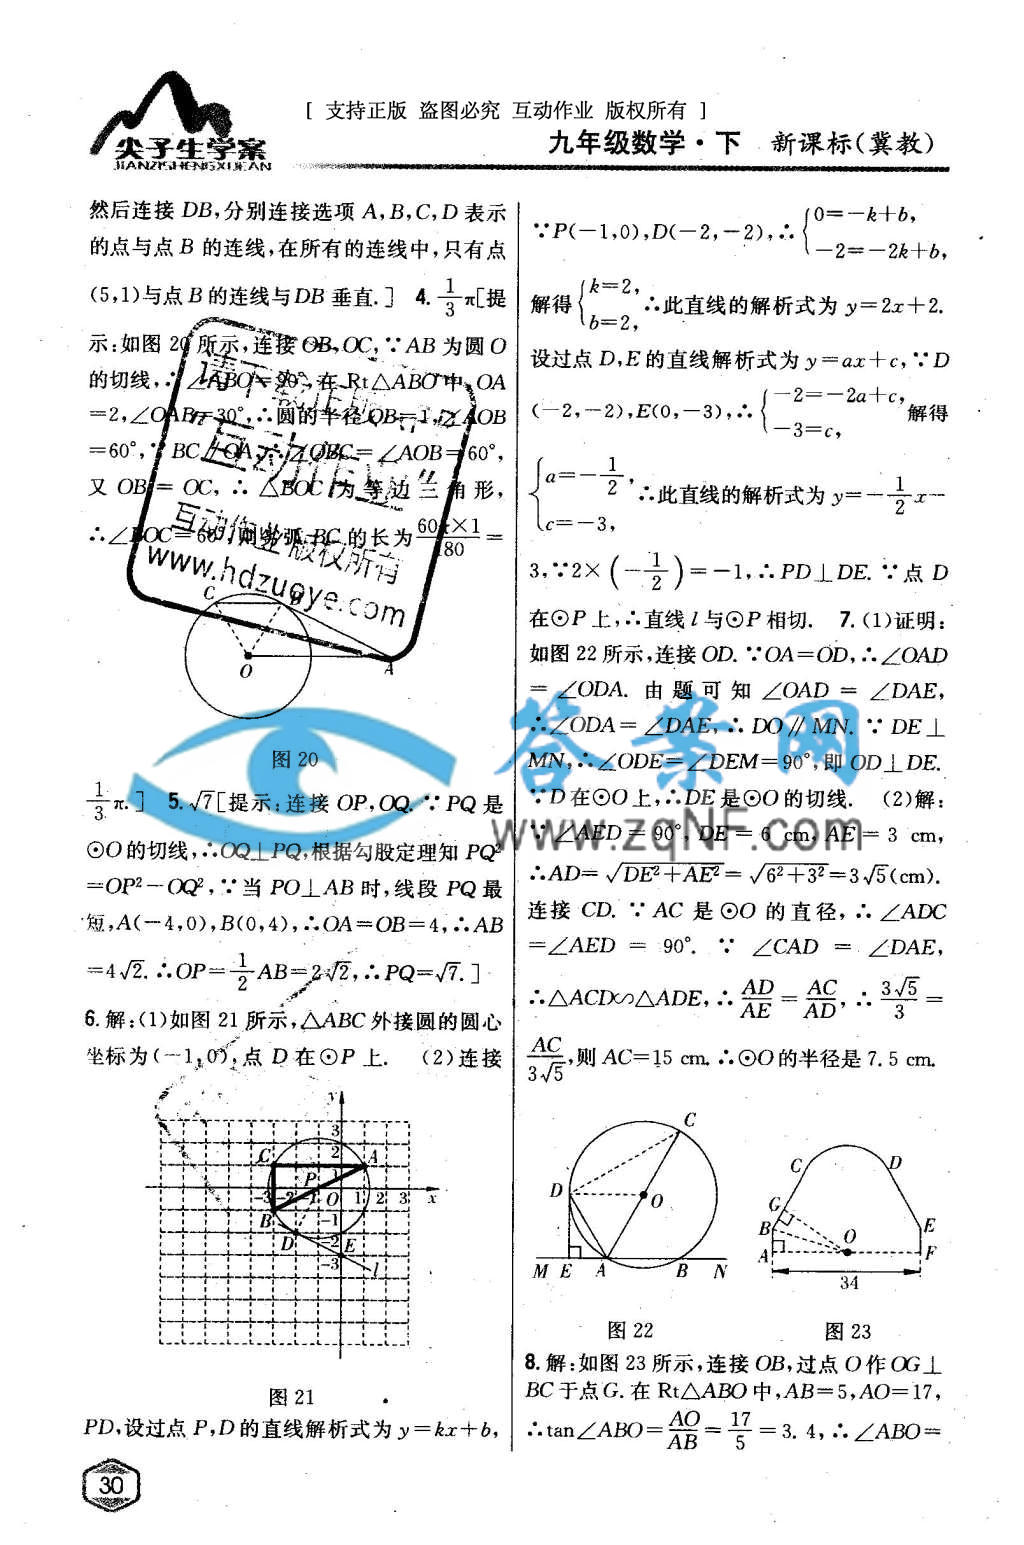 [ 支持正版 盗图必究 互动作业 版权所有 ]
尖子生学案
JIANZISHENGXUEAN
九年级数学·下 新课标(冀教)
然后连接 DB,分别连接选项 A,B,C,D 表示
的点与点 B 的连线,在所有的连线中,只有点
(5,1)与点 B 的连线与DB 垂直.] 4. 1/3 π[提
示:如图 20 所示,连接 OB,OC,∵AB 为圆 O
的切线,∴∠ABO=90°,在 Rt△ABO 中,OA
=2,∠OAB=30°,∴圆的半径OB=1,∠AOB
=60°,∵BC∥OA,∴∠OBC=∠AOB=60°,
又 OB = OC, ∴ △BOC 为 等 边 三 角 形,
∴∠BOC=60°,则劣弧 BC 的长为 60π×1/180 =
请下载正版
"互动作业"
互动作业 版权所有
www.hdzuoye.com
C B
O A
图 20
1/3 π.] 5. √7[提示:连接 OP,OQ.∵PQ 是
⊙O 的切线,∴OQ⊥PQ,根据勾股定理知 PQ²
=OP²-OQ²,∵当 PO⊥AB 时,线段 PQ 最
短,A(-4,0),B(0,4),∴OA=OB=4,∴AB
=4√2.∴OP=1/2 AB=2√2,∴PQ=√7.]
6.解:(1)如图 21 所示,△ABC 外接圆的圆心
坐标为(-1,0),点 D 在⊙P 上. (2)连接
y
3
C 2 A
P 1
-3 -2 -1 O 1 2 3 x
B -1
D -2 E
-3 l
图 21
PD,设过点 P,D 的直线解析式为 y=kx+b,
30
∵P(-1,0),D(-2,-2),∴{0=-k+b,
-2=-2k+b,
解得{k=2,
b=2, ∴此直线的解析式为 y=2x+2.
设过点 D,E 的直线解析式为 y=ax+c,∵D
(-2,-2),E(0,-3),∴{-2=-2a+c,
-3=c, 解得
{a=-1/2,
c=-3, ∴此直线的解析式为 y=-1/2 x-
3,∵2×(-1/2)=-1,∴PD⊥DE.∵点 D
在⊙P 上,∴直线 l 与⊙P 相切. 7.(1)证明:
如图 22 所示,连接 OD.∵OA=OD,∴∠OAD
= ∠ODA. 由 题 可 知 ∠OAD = ∠DAE,
∴∠ODA= ∠DAE,∴DO∥MN.∵DE⊥
MN,∴∠ODE=∠DEM=90°,即 OD⊥DE.
∵D 在⊙O 上,∴DE 是⊙O 的切线. (2)解:
∵ ∠AED = 90°, DE = 6 cm, AE = 3 cm,
∴AD= √DE²+AE² = √6²+3² =3√5(cm).
连接 CD.∵AC 是 ⊙O 的直径,∴∠ADC
=∠AED = 90°. ∵ ∠CAD = ∠DAE,
∴△ACD∽△ADE,∴ AD/AE = AC/AD, ∴ 3√5/3 =
AC/3√5,则 AC=15 cm.∴⊙O 的半径是 7.5 cm.
答案网
www.zqNF.com
C
D O
M E A B N
图 22
C D
G
B E
A O F
34
图 23
8.解:如图 23 所示,连接 OB,过点 O 作 OG⊥
BC 于点 G.在 Rt△ABO 中,AB=5,AO=17,
∴tan∠ABO= AO/AB = 17/5 =3.4,∴∠ABO=